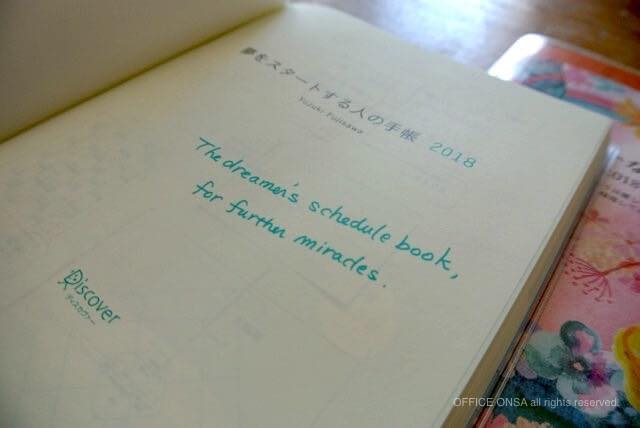 夢をスタートする人の手帳 2018
Yuzuki Fujisawa
The dreamer's schedule book,
for further miracles.
Discover
ディスカヴァー
OFFICE ONSA all rights reserved.